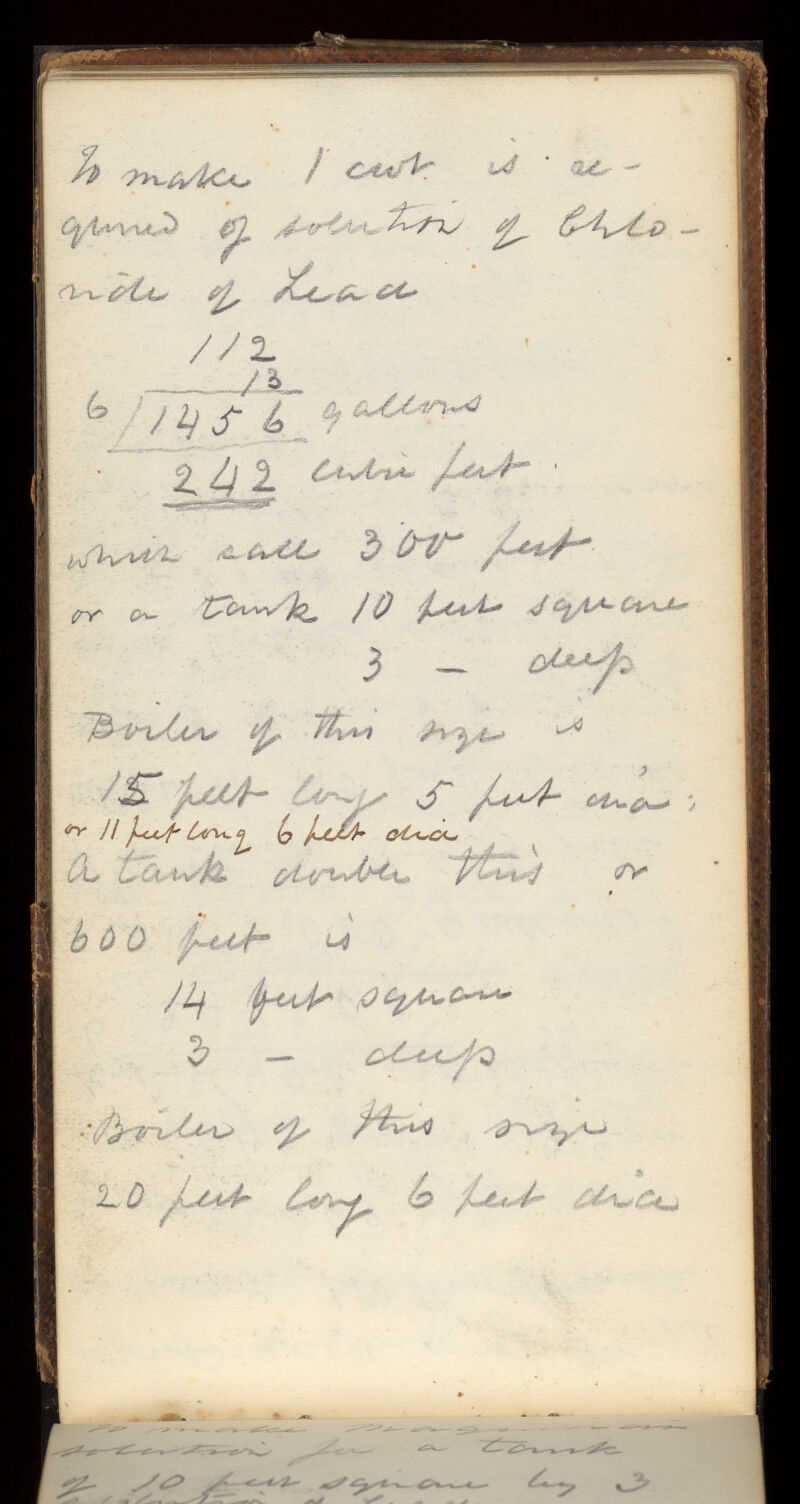 To make 1 cwt. is re-
quired of solution of Chlo-
ride of Lead
112
13
6 1456 gallons
242 cubic feet.
which call 300 feet.
or a tank 10 feet square
3 — deep
Boiler of this size is
15 feet long 5 feet dia:
or 11 feet long 6 feet dia
A tank double this or
600 feet is
14 feet square
3 — deep
Boiler of this size
20 feet long 6 feet dia
to make
solution for a tank
of 10 feet square by 3